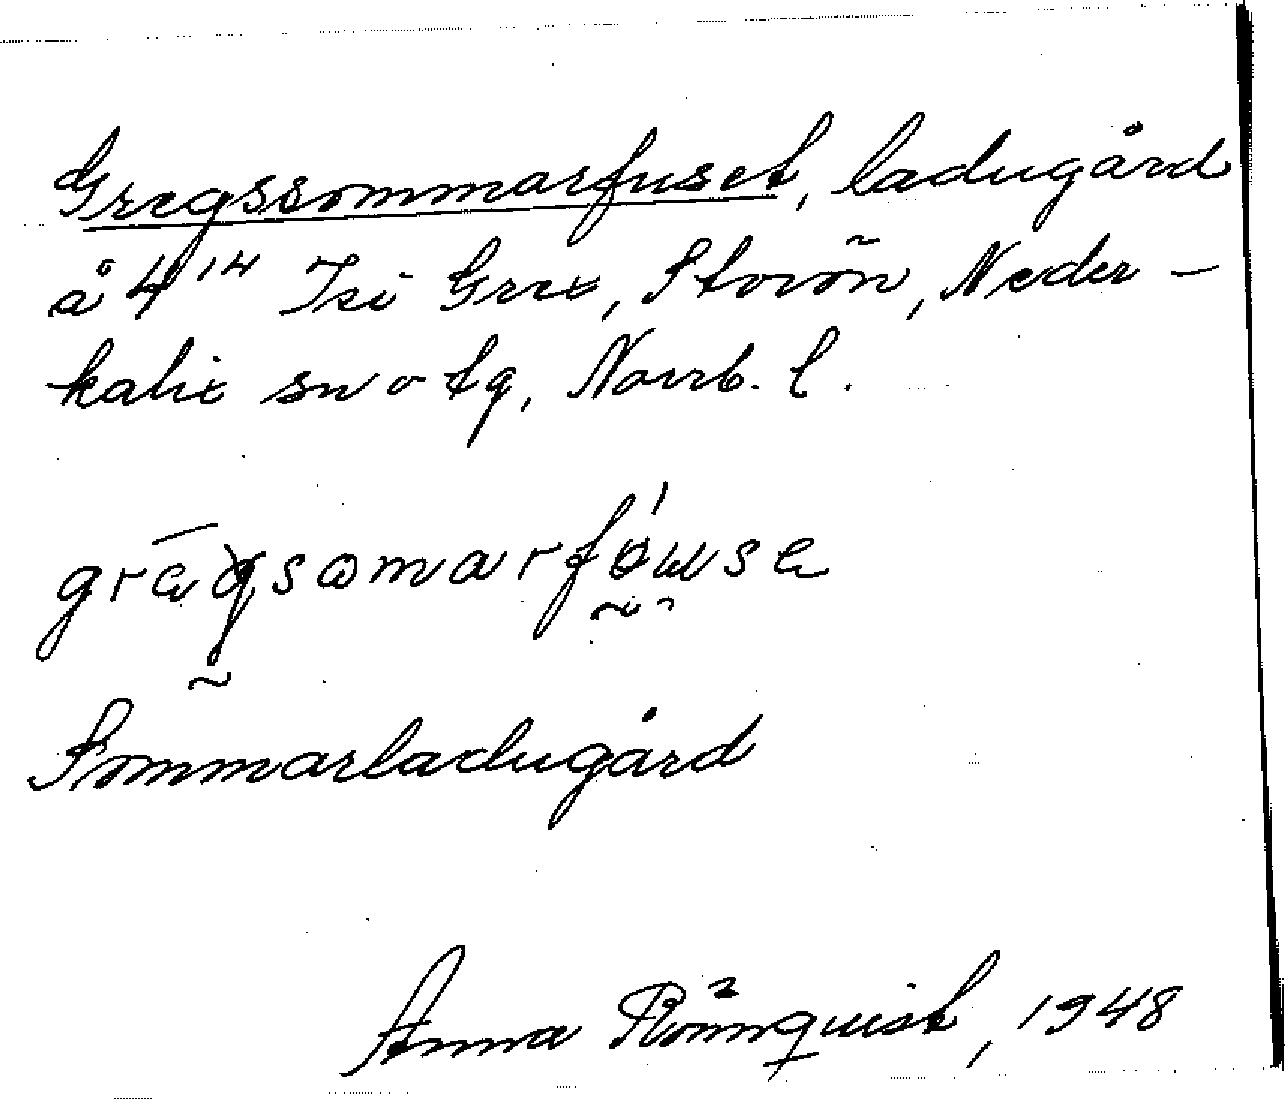 Gregssommarfuset, ladugård
å 4¹⁴ Grex, Storön, Neder-
kalix sn o tg, Norrb. l.
Sommarladugård
Anna Rönnquist, 1948